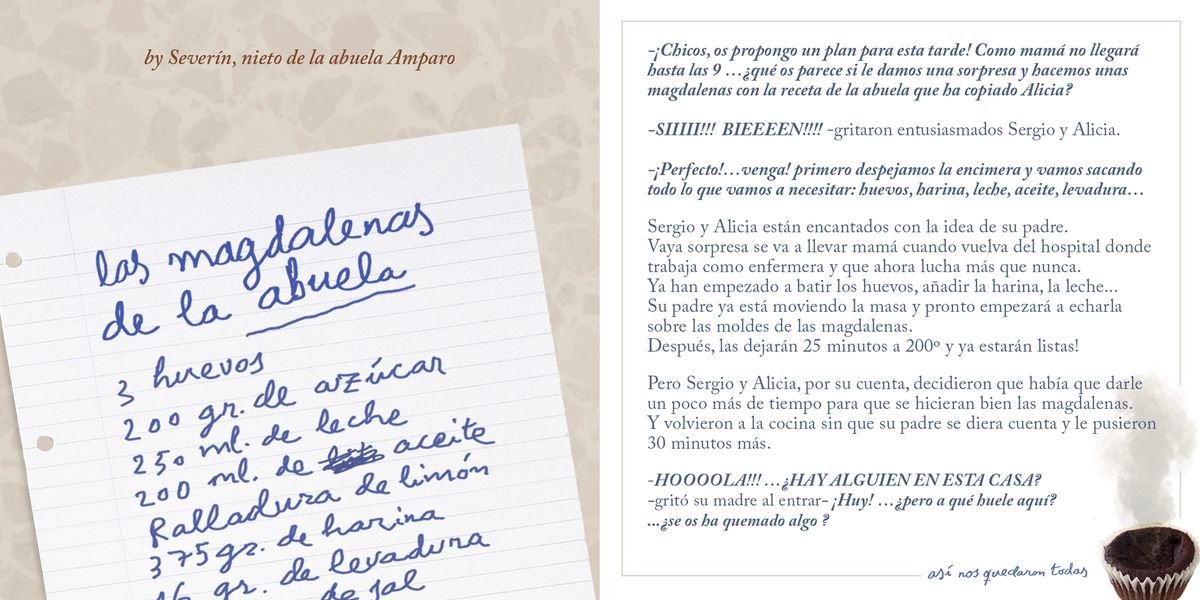 by Severín, nieto de la abuela Amparo
las magdalenas
de la abuela
3 huevos
200 gr. de azúcar
250 ml. de leche
200 ml. de aceite
Ralladura de limón
375 gr. de harina
16 gr. de levadura
de sal
-¡Chicos, os propongo un plan para esta tarde! Como mamá no llegará
hasta las 9 …¿qué os parece si le damos una sorpresa y hacemos unas
magdalenas con la receta de la abuela que ha copiado Alicia?
-SIIIII!!! BIEEEEN!!!! -gritaron entusiasmados Sergio y Alicia.
-¡Perfecto!…venga! primero despejamos la encimera y vamos sacando
todo lo que vamos a necesitar: huevos, harina, leche, aceite, levadura…
Sergio y Alicia están encantados con la idea de su padre.
Vaya sorpresa se va a llevar mamá cuando vuelva del hospital donde
trabaja como enfermera y que ahora lucha más que nunca.
Ya han empezado a batir los huevos, añadir la harina, la leche...
Su padre ya está moviendo la masa y pronto empezará a echarla
sobre las moldes de las magdalenas.
Después, las dejarán 25 minutos a 200º y ya estarán listas!
Pero Sergio y Alicia, por su cuenta, decidieron que había que darle
un poco más de tiempo para que se hicieran bien las magdalenas.
Y volvieron a la cocina sin que su padre se diera cuenta y le pusieron
30 minutos más.
-HOOOOLA!!! …¿HAY ALGUIEN EN ESTA CASA?
-gritó su madre al entrar- ¡Huy! …¿pero a qué huele aquí?
...¿se os ha quemado algo ?
así nos quedaron todas